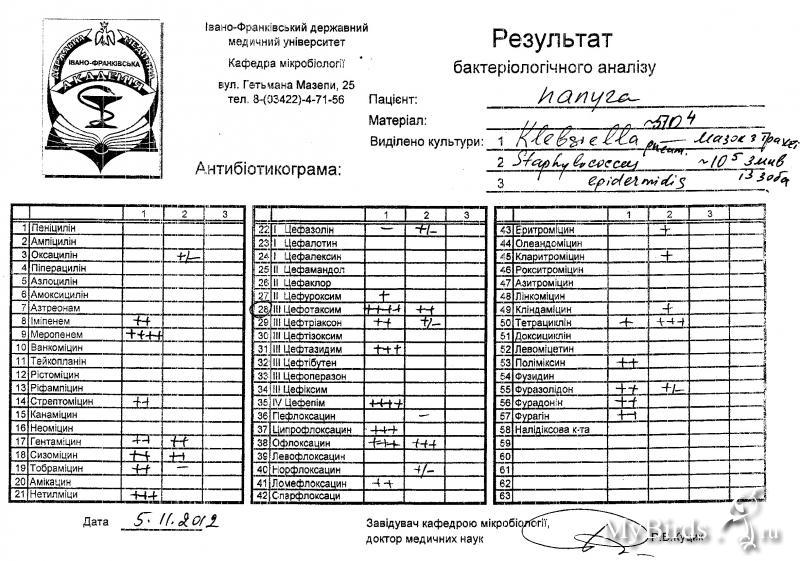 Івано-Франківський державний
медичний університет
Кафедра мікробіології
вул. Гетьмана Мазепи, 25
тел. 8-(03422)-4-71-56
ІВАНО-ФРАНКІВСЬКА
АКАДЕМІЯ
Результат
бактеріологічного аналізу
Пацієнт: папуга
Матеріал:
Виділено культури: 1 Klebsiella pneum. ~5·10 4 мазок з трахеї
2 Staphylococcus ~10 5 змив
3 epidermidis із зоба
Антибіотикограма:
1 2 3
1 Пеніцилін
2 Ампіцилін
3 Оксацилін +/-
4 Піперацилін
5 Азлоцилін
6 Амоксицилін
7 Азтреонам
8 Іміпенем ++
9 Меропенем ++++
10 Ванкоміцин
11 Тейкопланін
12 Рістоміцин
13 Ріфампіцин
14 Стрептоміцин ++
15 Канаміцин
16 Неоміцин
17 Гентаміцин ++ ++
18 Сизоміцин ++ ++
19 Тобраміцин ++ -
20 Амікацин
21 Нетилміци +++
1 2 3
22 I Цефазолін - +/-
23 I Цефалотин
24 I Цефалексин
25 II Цефамандол
26 II Цефаклор
27 II Цефуроксим +
28 III Цефотаксим ++++ ++
29 III Цефтріаксон ++ +/-
30 III Цефтізоксим
31 III Цефтазидим +++
32 III Цефтібутен
33 III Цефоперазон
34 III Цефіксим
35 IV Цефепім ++++
36 Пефлоксацин -
37 Ципрофлоксацин +++
38 Офлоксацин +++ +++
39 Левофлоксацин
40 Норфлоксацин +/-
41 Ломефлоксацин ++
42 Спарфлоксаци
1 2 3
43 Еритроміцин +
44 Олеандоміцин
45 Кларитроміцин +
46 Рокситроміцин
47 Азитроміцин
48 Лінкоміцин
49 Кліндаміцин +
50 Тетрациклін + +++
51 Доксициклін
52 Левоміцетин
53 Поліміксин ++
54 Фузидин
55 Фуразолідон ++ +/-
56 Фурадонін ++
57 Фурагін ++
58 Налідіксова к-та
59
60
61
62
63
Дата 5.11.2012
Завідувач кафедрою мікробіології,
доктор медичних наук Р.В.Куцик
MyBirds.ru